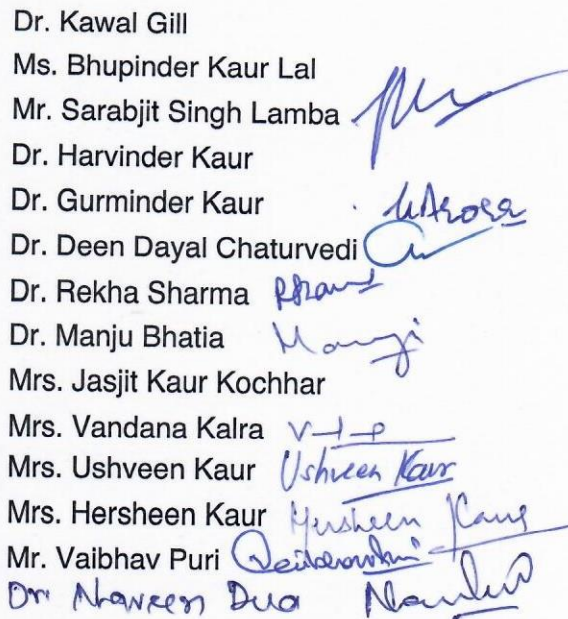 Dr. Kawal Gill
Ms. Bhupinder Kaur Lal
Mr. Sarabjit Singh Lamba
Dr. Harvinder Kaur
Dr. Gurminder Kaur
Dr. Deen Dayal Chaturvedi
Dr. Rekha Sharma
Dr. Manju Bhatia
Mrs. Jasjit Kaur Kochhar
Mrs. Vandana Kalra
Mrs. Ushveen Kaur Ushveen Kaur
Mrs. Hersheen Kaur Hersheen Kaur
Mr. Vaibhav Puri
Dr. Naveen Dua